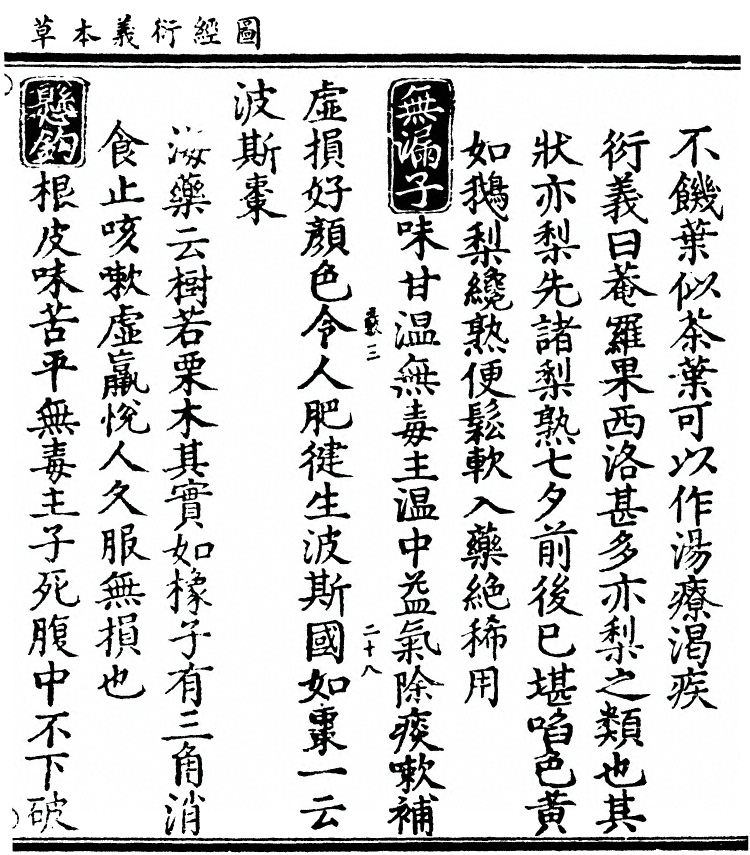 圖經衍義本草
不饑葉似茶葉可以作湯療渴疾
衍義曰菴羅果西洛甚多亦梨之類也其
狀亦梨先諸梨熟七夕前後已堪啗色黃
如鵝梨纔熟便鬆軟入藥絕稀用
無漏子味甘溫無毒主溫中益氣除痰嗽補
虛損好顏色令人肥健生波斯國如棗一云
波斯棗
海藥云樹若栗木其實如橡子有三角消
食止咳嗽虛羸悅人久服無損也
懸鈎根皮味苦平無毒主子死腹中不下破
三
二十八